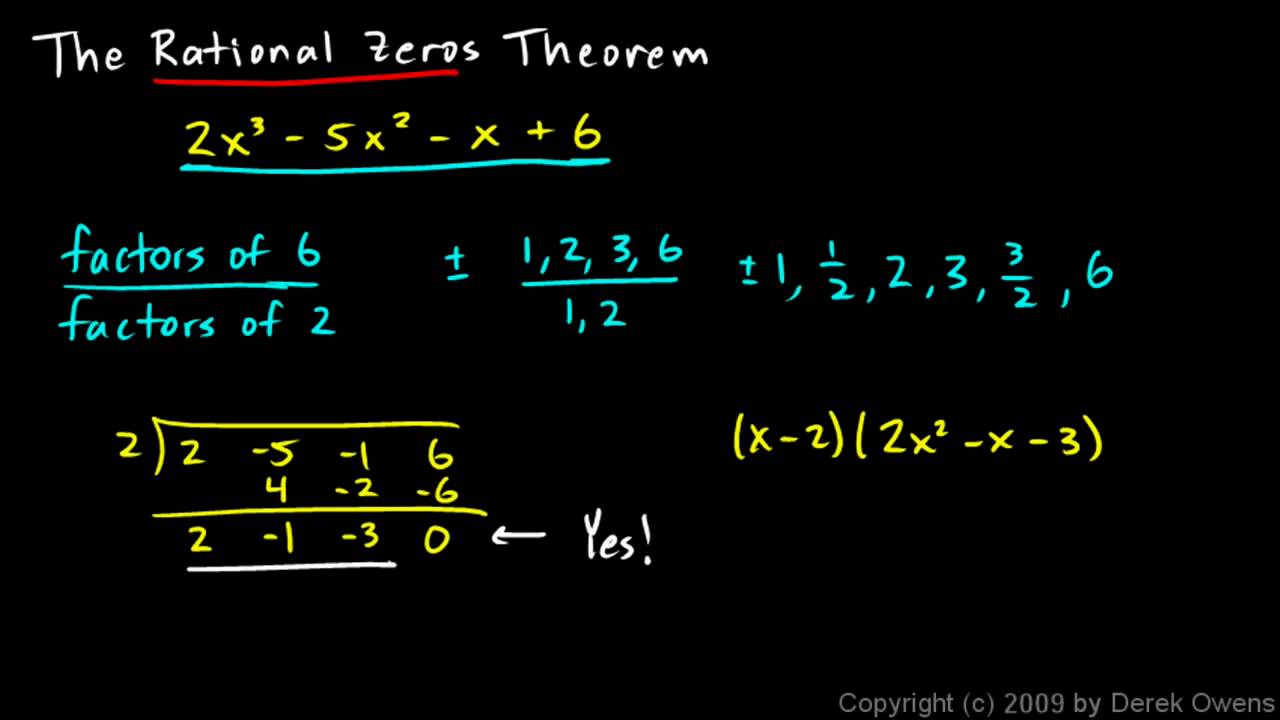 The Rational Zeros Theorem
2x³ - 5x² - x + 6
factors of 6
factors of 2
± 1, 2, 3, 6
1, 2
± 1, 1/2, 2, 3, 3/2, 6
2) 2 -5 -1 6
4 -2 -6
2 -1 -3 0 ← Yes!
(x-2)(2x² -x -3)
Copyright (c) 2009 by Derek Owens